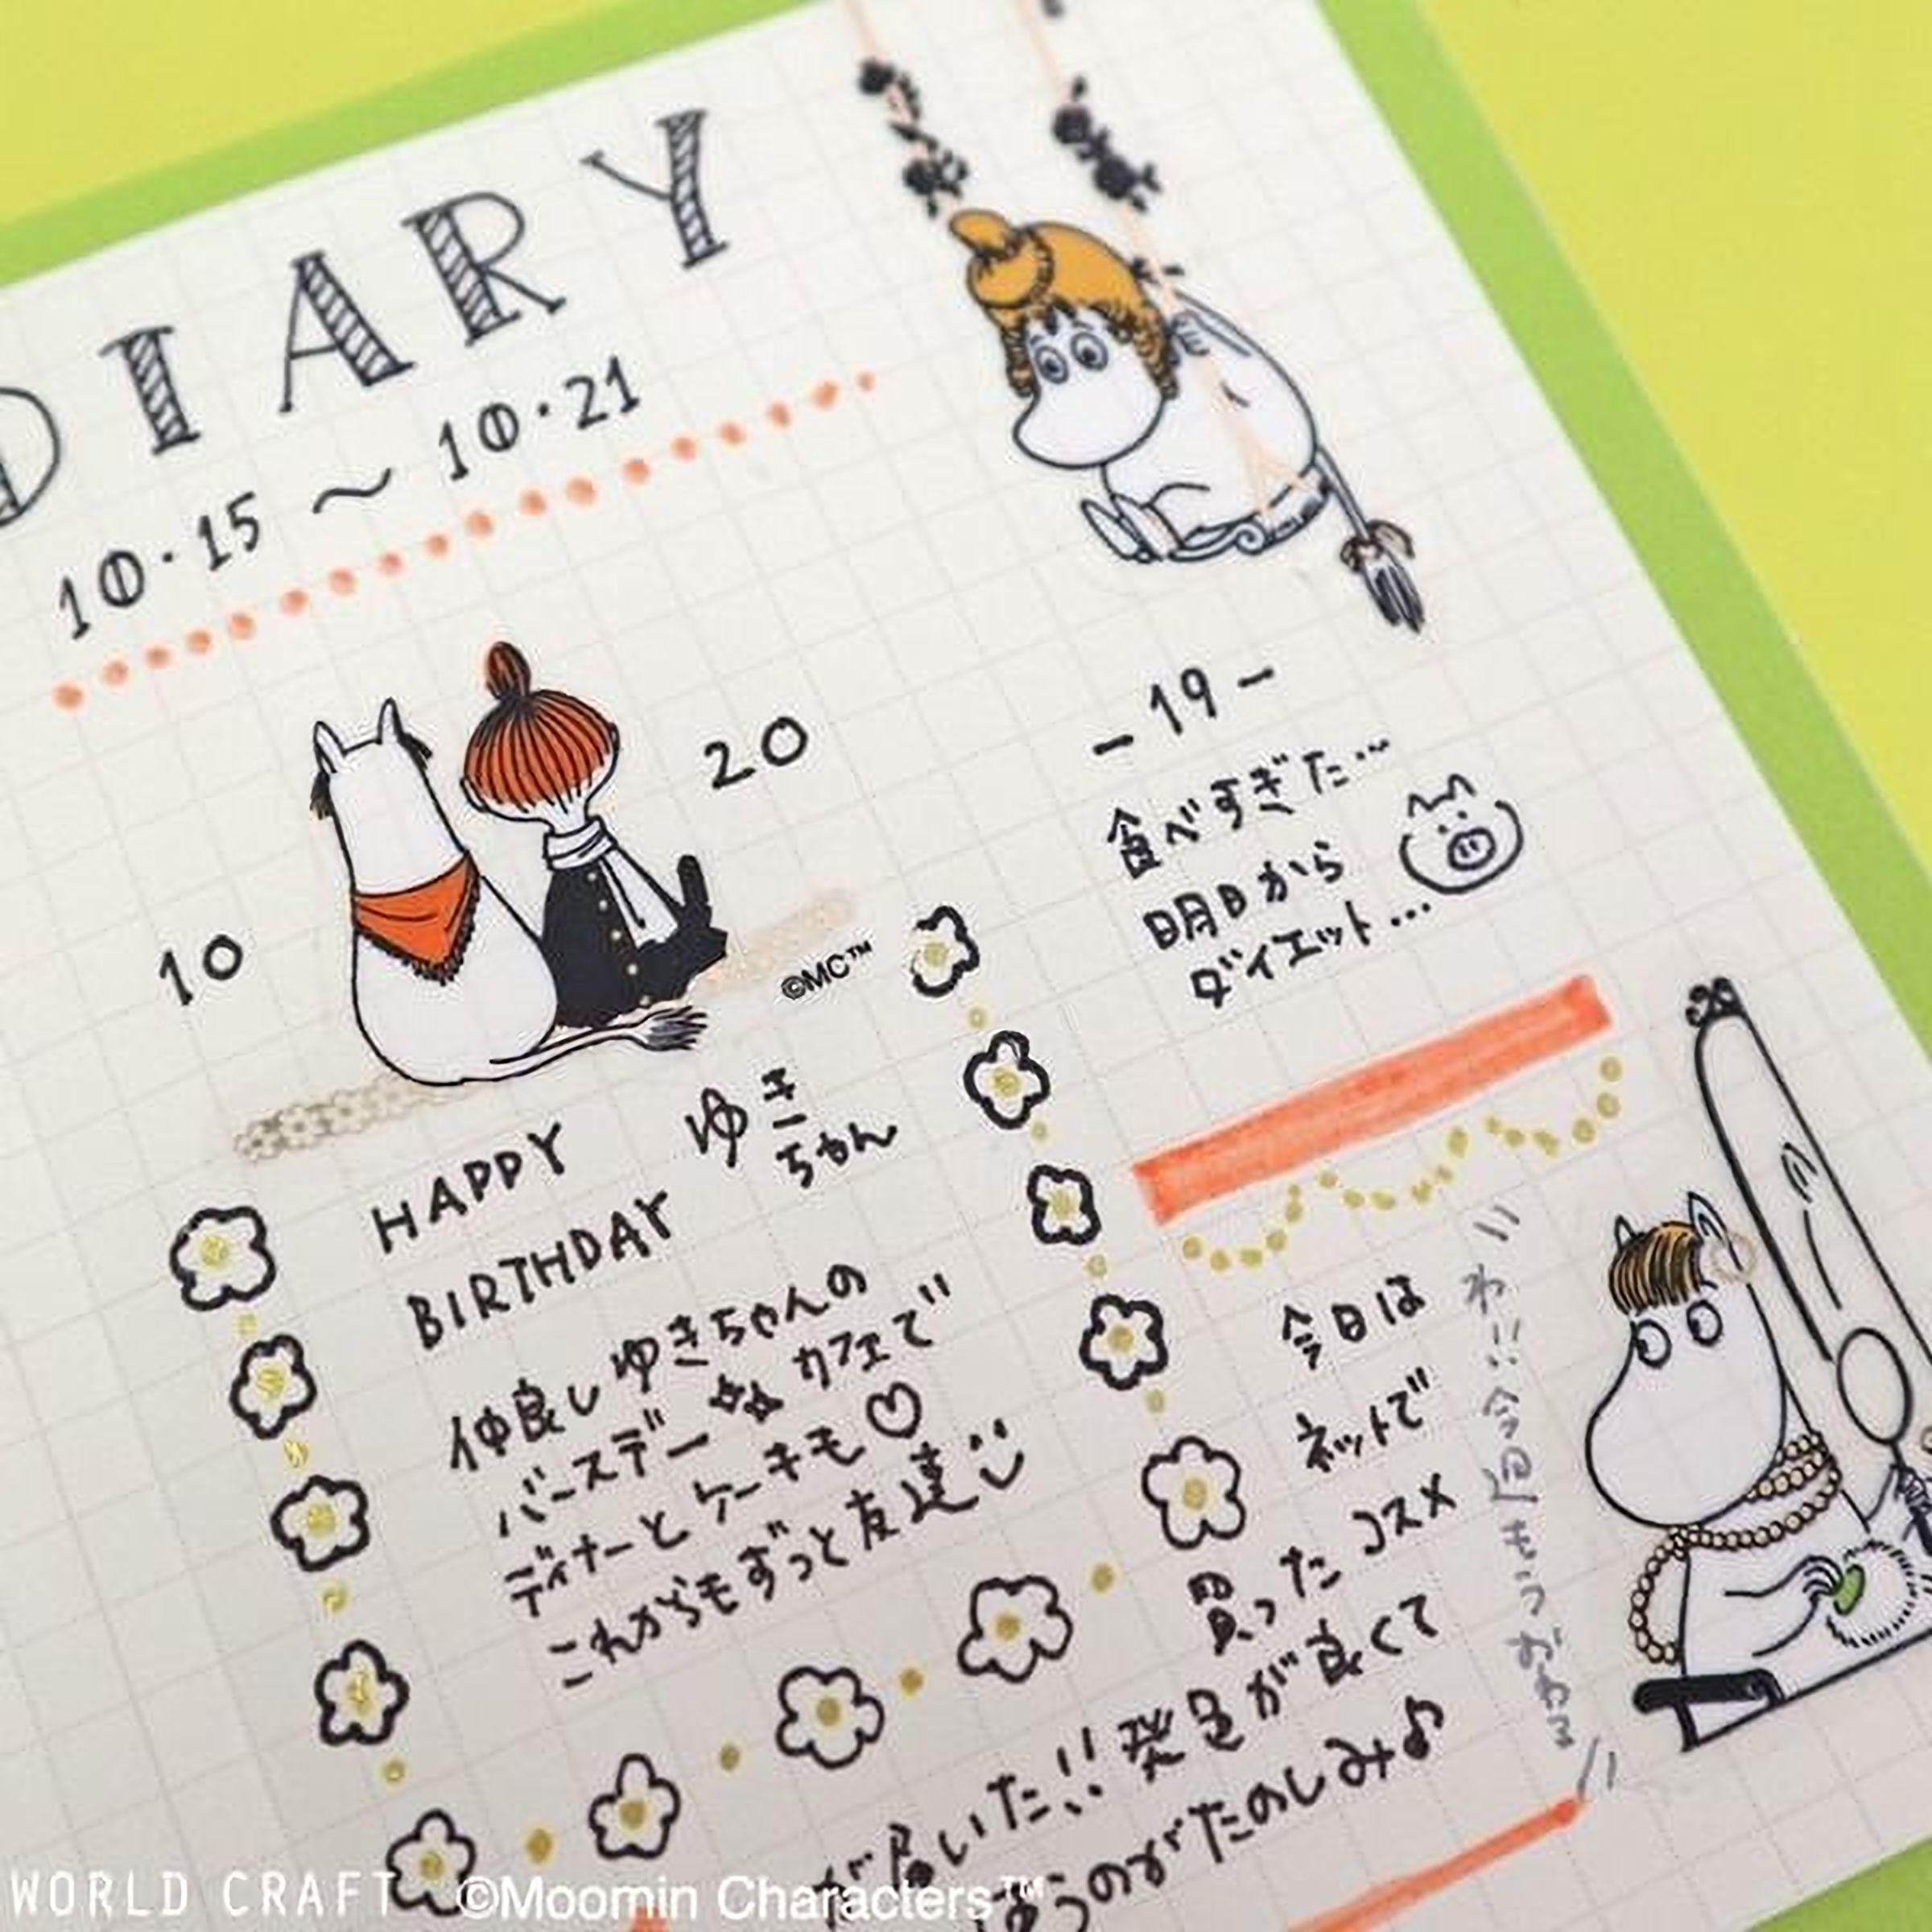 DIARY
10・15 〜 10・21
10
20
©MC™
HAPPY
BIRTHDAY
ゆき
ちゃん
仲良しゆきちゃんの
バースデー☆☆ カフェで
ディナーとケーキも♡
これからもずっと友達
-19-
食べすぎた…
明日から
ダイエット…
今日は
ネットで
買ったコスメ
が届いた!! 発色が良くて
うのがたのしみ♪
わ!! 今週もうおわる
WORLD CRAFT ©Moomin Characters™